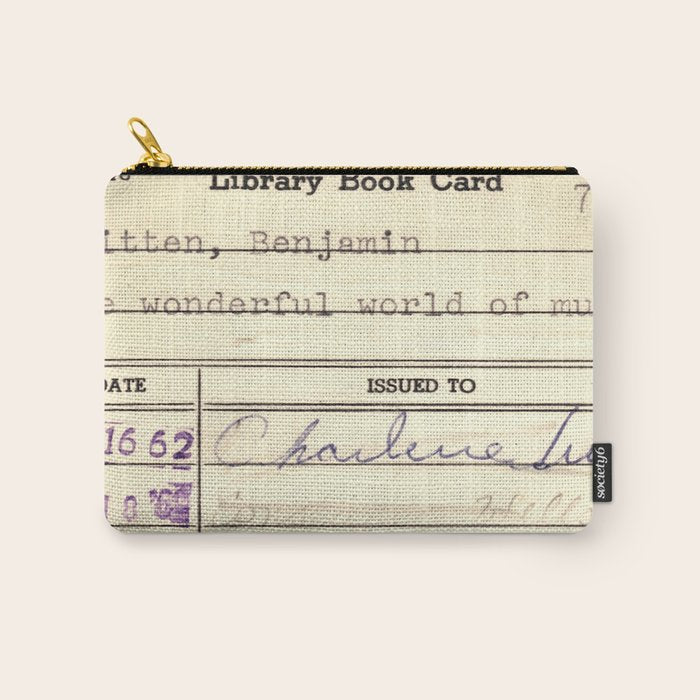 Library Book Card
7
itten, Benjamin
e wonderful world of mu
DATE
ISSUED TO
16 62
Charlene
society6